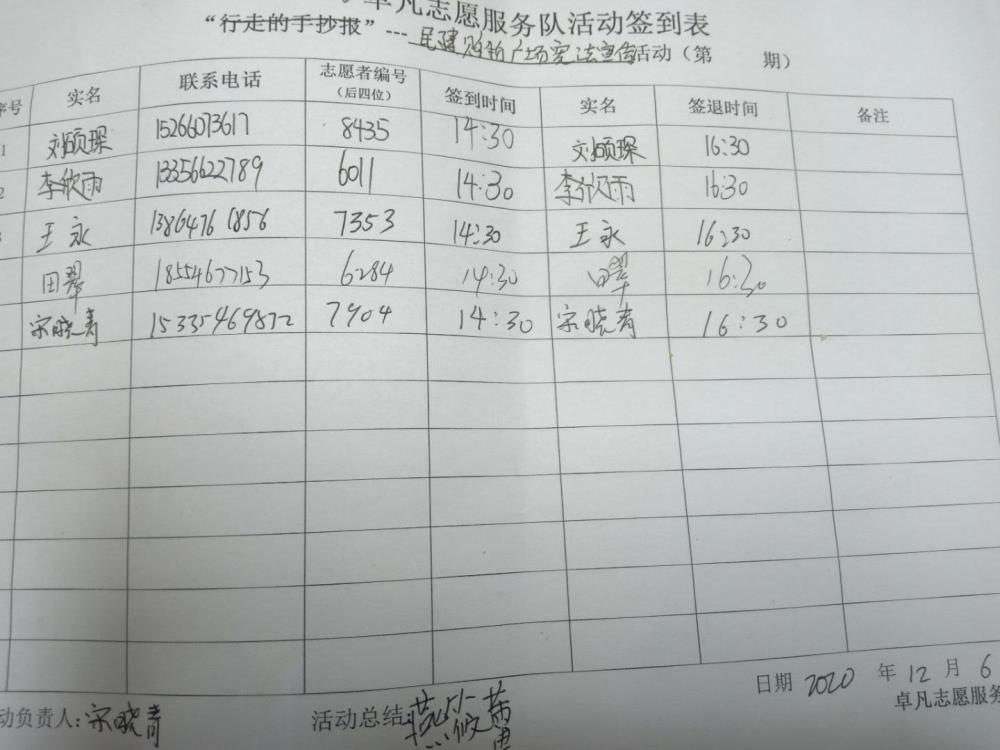 卓凡志愿服务队活动签到表
“行走的手抄报”---民建购物广场宪法宣传活动（第 期）
序号 实名 联系电话 志愿者编号（后四位） 签到时间 实名 签退时间 备注
1 刘硕琛 15266073617 8435 14:30 刘硕琛 16:30
2 李欣雨 13356622789 6011 14:30 李欣雨 16:30
王永 13864761856 7353 14:30 王永 16:30
田翠 18554677153 6284 14:30 田翠 16:30
宋晓青 15335469872 7904 14:30 宋晓青 16:30
日期 2020 年 12 月 6
动负责人:宋晓青 活动总结 卓凡志愿服务